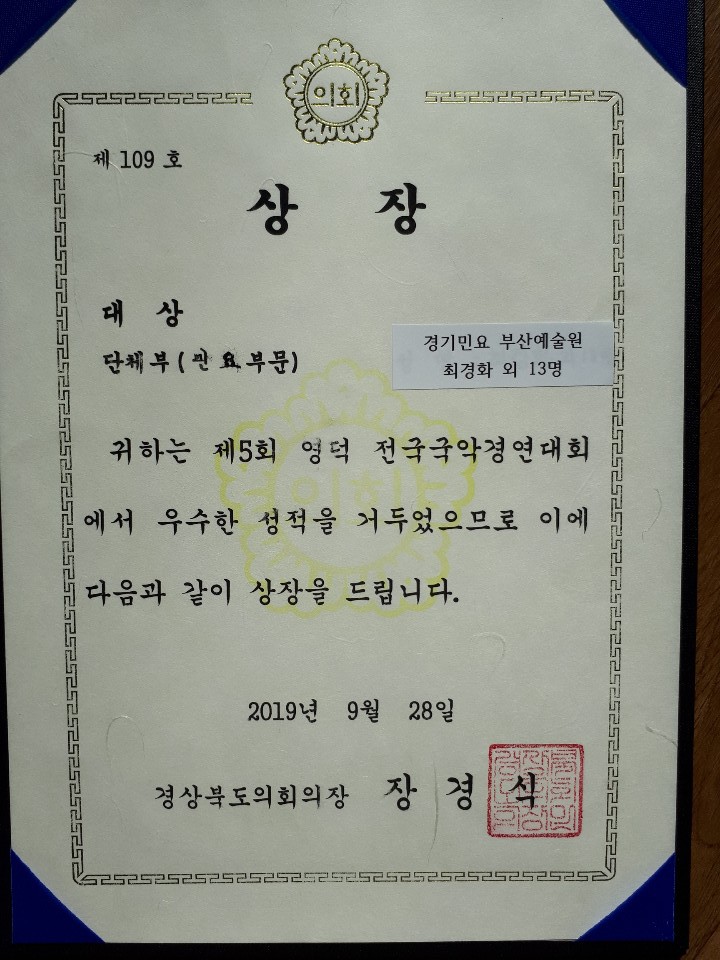 의회
제 109 호
상 장
대 상
단체부 (민요부문)
경기민요 부산예술원
최경화 외 13명
귀하는 제5회 영덕 전국국악경연대회
에서 우수한 성적을 거두었으므로 이에
다음과 같이 상장을 드립니다.
2019년 9월 28일
경상북도의회의장 장 경 식